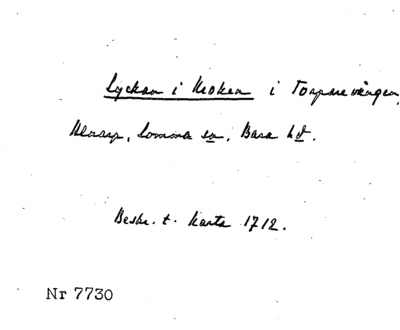 Lyckan i Kroken i Torparevången,
Alnarp, Lomma sn, Bara hd.
Beskr. t. karta 1712.
Nr 7730